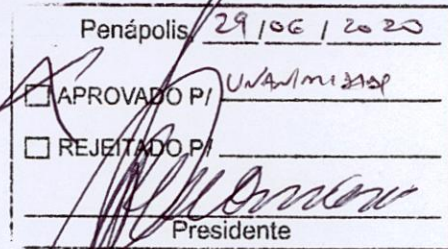 Penápolis, 29/06/2020
☐ APROVADO P/ UNANIMIDADE
☐ REJEITADO P/
Presidente